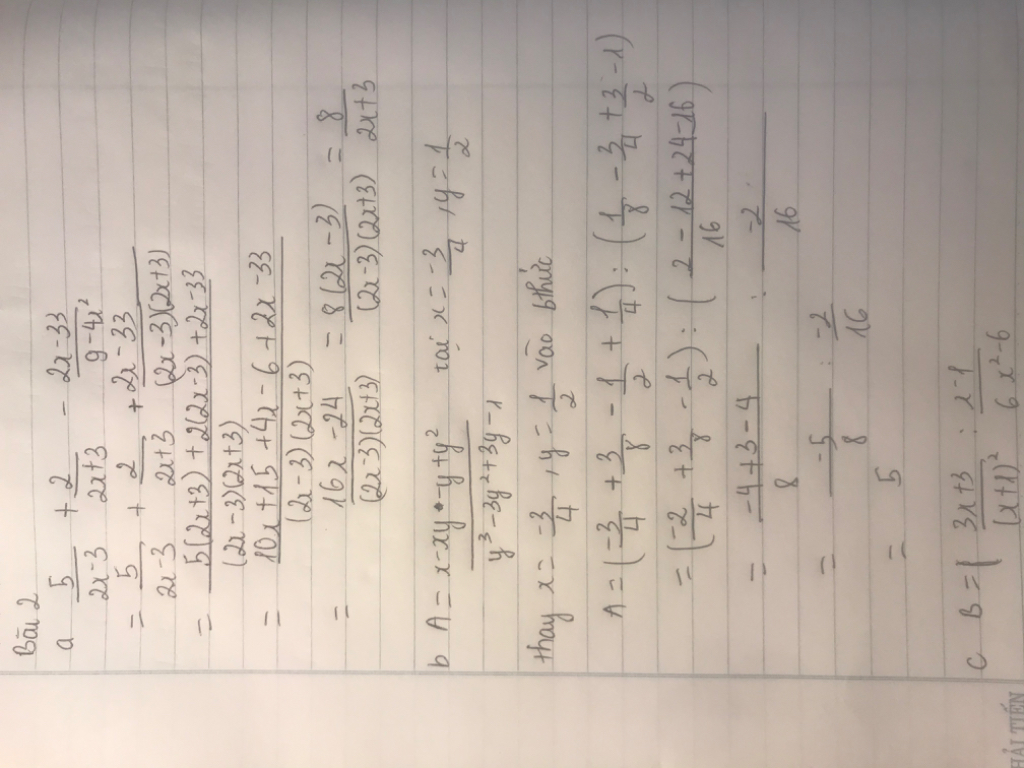 Bài 2
a 5/(2x-3) + 2/(2x+3) - (2x-33)/(9-4x²)
= 5/(2x-3) + 2/(2x+3) + (2x-33)/((2x-3)(2x+3))
= (5(2x+3) + 2(2x-3) + 2x-33)/((2x-3)(2x+3))
= (10x+15+4x-6+2x-33)/((2x-3)(2x+3))
= (16x-24)/((2x-3)(2x+3)) = 8(2x-3)/((2x-3)(2x+3)) = 8/(2x+3)
b A = (x-xy-y+y²)/(y³-3y²+3y-1) tại x = -3/4, y = 1/2
thay x = -3/4, y = 1/2 vào bthức
A = (-3/4 + 3/8 - 1/2 + 1/4) : (1/8 - 3/4 + 3/2 - 1)
= (-2/4 + 3/8 - 1/2) : ((2-12+24-16)/16)
= (-4+3-4)/8 : -2/16
= -5/8 : -2/16
= 5
c B = ( (3x+3)/(x+1)² : (x-1)/(6x²-6)
HẢI TIẾN